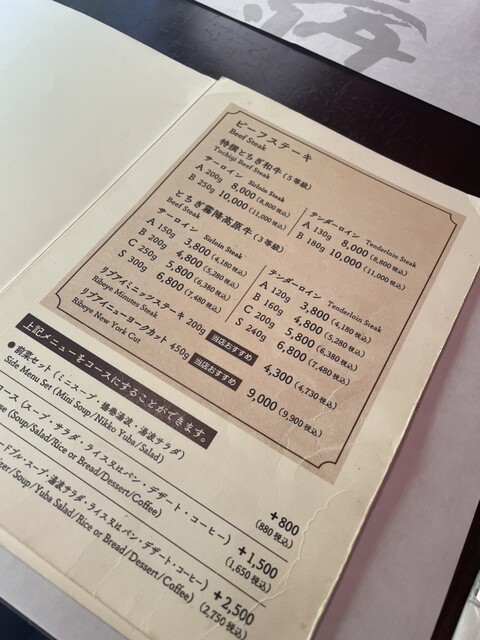 ビーフステーキ
Beef Steak
特撰とちぎ和牛(5等級)
Tochigi Beef Steak
サーロイン Sirloin Steak
A 200g 8,000(8,800税込)
B 250g 10,000(11,000税込)
テンダーロイン Tenderloin Steak
A 130g 8,000(8,800税込)
B 180g 10,000(11,000税込)
とちぎ霧降高原牛(3等級)
Beef Steak
サーロイン Sirloin Steak
A 150g 3,800(4,180税込)
B 200g 4,800(5,280税込)
C 250g 5,800(6,380税込)
S 300g 6,800(7,480税込)
テンダーロイン Tenderloin Steak
A 120g 3,800(4,180税込)
B 160g 4,800(5,280税込)
C 200g 5,800(6,380税込)
S 240g 6,800(7,480税込)
リブアイ・ミニッツステーキ 200g 当店おすすめ 4,300(4,730税込)
Ribeye Minutes Steak
リブアイニューヨークカット 450g 当店おすすめ 9,000(9,900税込)
Ribeye New York Cut
上記メニューをコースにすることができます。
●前菜セット(ミニスープ・揚巻湯波・湯波サラダ) +800
Side Menu Set (Mini Soup/Nikko Yuba/Salad) (880税込)
コース(スープ・サラダ・ライス又はパン・デザート・コーヒー) +1,500
(Soup/Salad/Rice or Bread/Dessert/Coffee) (1,650税込)
ードブル・スープ・湯波サラダ・ライス又はパン・デザート・コーヒー) +2,500
izer/Soup/Yuba Salad/Rice or Bread/Dessert/Coffee) (2,750税込)